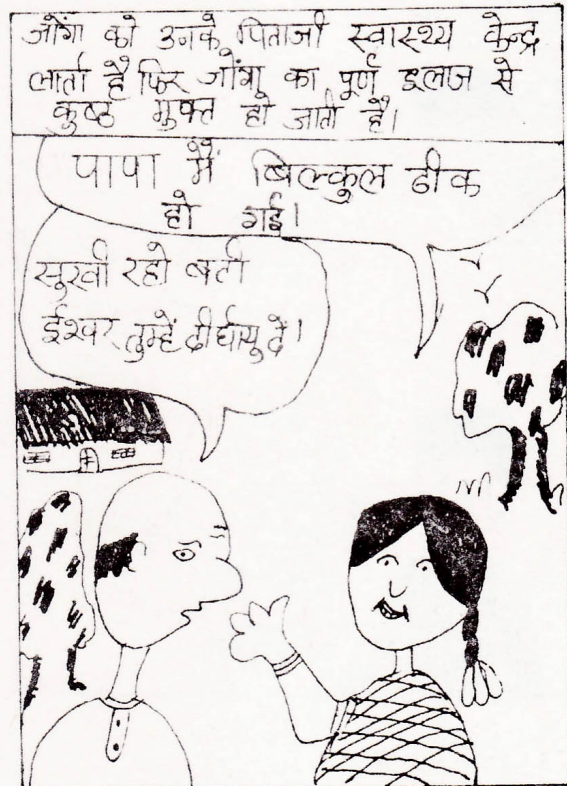 जोंगा को उनके पिताजी स्वास्थ्य केन्द्र
लाता है फिर जोंगा का पूर्ण इलाज से
कुष्ठ मुक्त हो जाती है।
पापा मैं बिल्कुल ठीक
हो गई।
सुखी रहो बेटी
ईश्वर तुम्हें दीर्घायु दे!